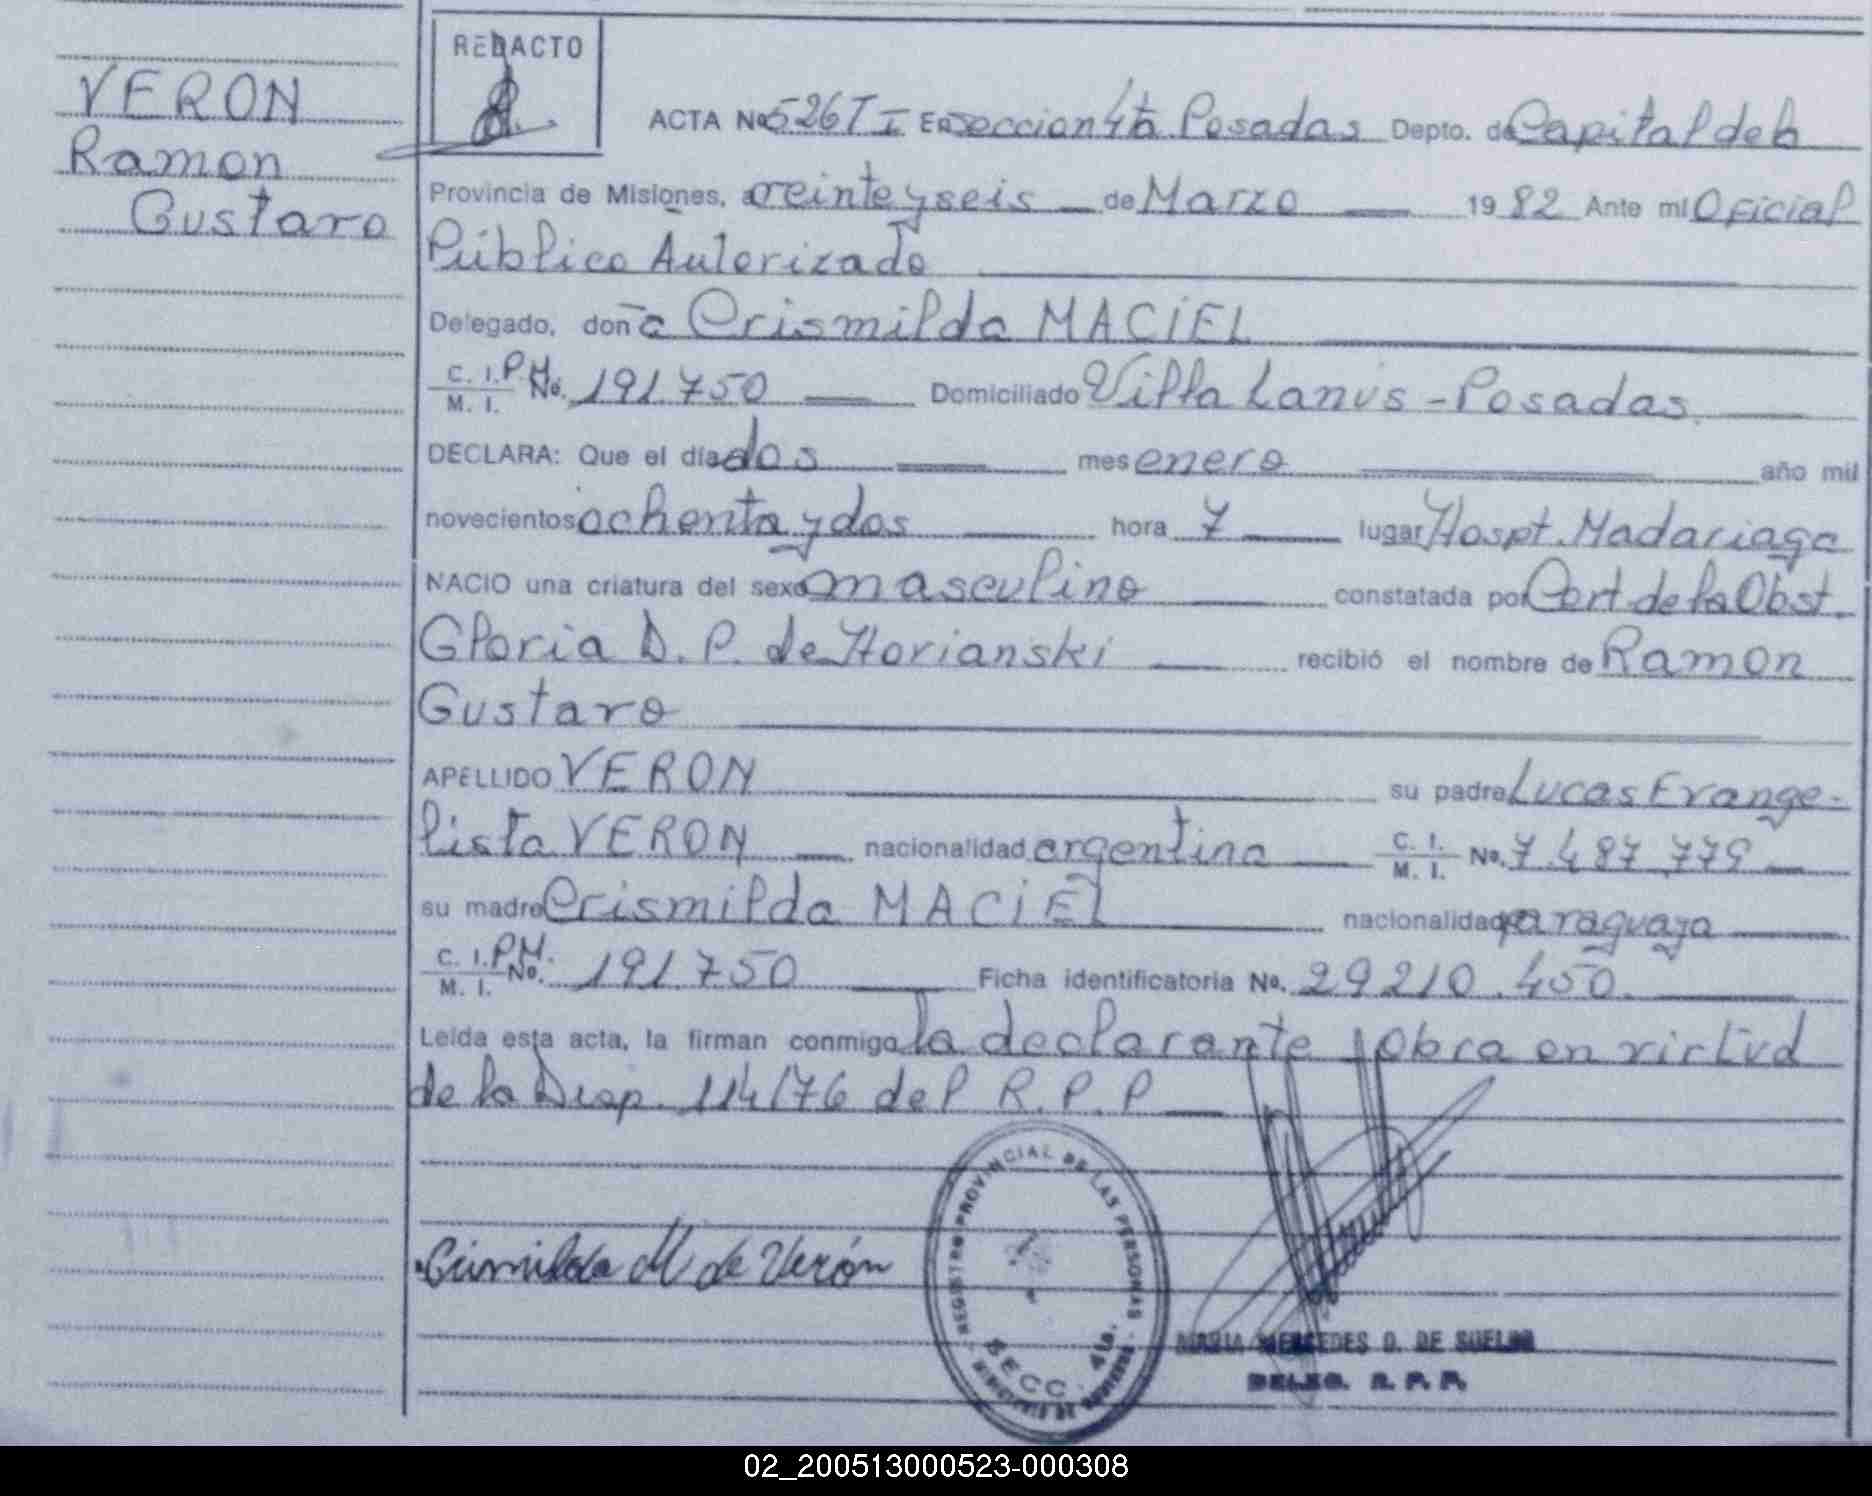 VERON
Ramon
Gustavo
REDACTO
ACTA No 526 T I En seccion 4ta Posadas Depto. de Capital de la
Provincia de Misiones, a veinte y seis de Marzo 19 82 Ante mi Oficial
Público Autorizado
Delegado, doña Crismilda MACIEL
C. I. P. M. No. 191.750 Domiciliado Villa Lanús - Posadas.
M. I.
DECLARA: Que el día dos mes enero año mil
novecientos ochenta y dos hora 7 lugar Hospt. Madariaga
NACIO una criatura del sexo masculino constatada por Cert de la Obst.
Gloria D. P. de Horianski recibió el nombre de Ramon
Gustavo
APELLIDO VERON su padre Lucas Evange-
lista VERON nacionalidad argentina C. I. M. I. No. 7.487.779
su madre Crismilda MACIEL nacionalidad paraguaya
C. I. P. M. No. 191.750 Ficha identificatoria No. 29210.450.
M. I.
Leída esta acta, la firman conmigo la declarante, obra en virtud
de la Disp. 114/76 del R. P. P
Crismilda M de Verón
REGISTRO PROVINCIAL DE LAS PERSONAS
SECC. 4ta.
MARIA MERCEDES D. DE
DELEG. R. P. P.
02_200513000523-000308